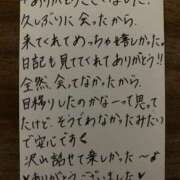 ありがとうございました
久しぶりに会ったから、
来てくれてめっちゃ嬉しかった。
日記も見ててくれてありがとう!!
全然、会ってなかったから、
目帰りしたのかなーって思って
たけど、そうでわなかったみたい
で安心です
沢山話せて楽しかった〜
ありがとうございました